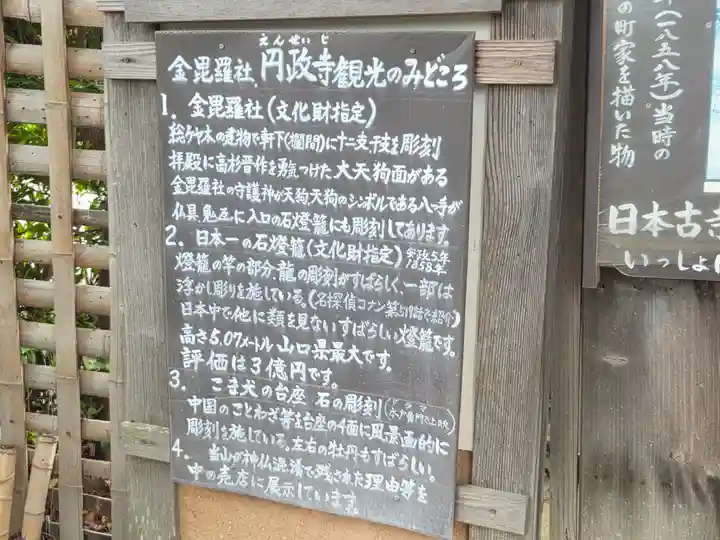 えんせいじ
金毘羅社、円政寺観光のみどころ
1. 金毘羅社(文化財指定)
総ケヤ木の建物で軒下(欄間)に十二支、干支を彫刻
拝殿に高杉晋作を勇気つけた大天狗面がある
金毘羅社の守護神が天狗、天狗のシンボルである八ツ手が
仏具、鬼瓦に入口の石燈籠にも彫刻してあります。
2. 日本一の石燈籠(文化財指定)安政5年1858年
燈籠の竿の部分、龍の彫刻がすばらしく、一部は
浮かし彫りを施している。(名探偵コナン第519話で紹介)
日本中で他に類を見ないすばらしい燈籠です。
高さ5.07メートル 山口県最大です。
評価は3億円です。
3. こま犬の台座 石の彫刻(ドラマ
中国のことわざ等を台座の4面に風景画的に
彫刻を施している。左右の牡丹もすばらしい。
4. 当山の神仏混淆で残された理由等を
中の売店に展示しています。
年(一八五八年)当時の
の町家を描いた物
日本古
いっしょ